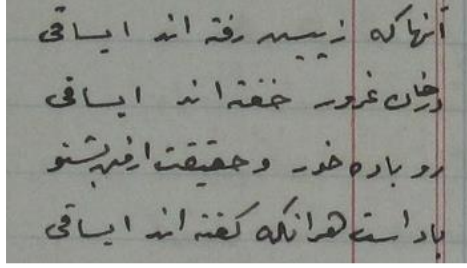 آنها که ز پیش رفته اند ایساقی
درخاک غرور خفته اند ایساقی
رو باده خور و حقیقت از من بشنو
باد است هرانکه گفته اند ایساقی